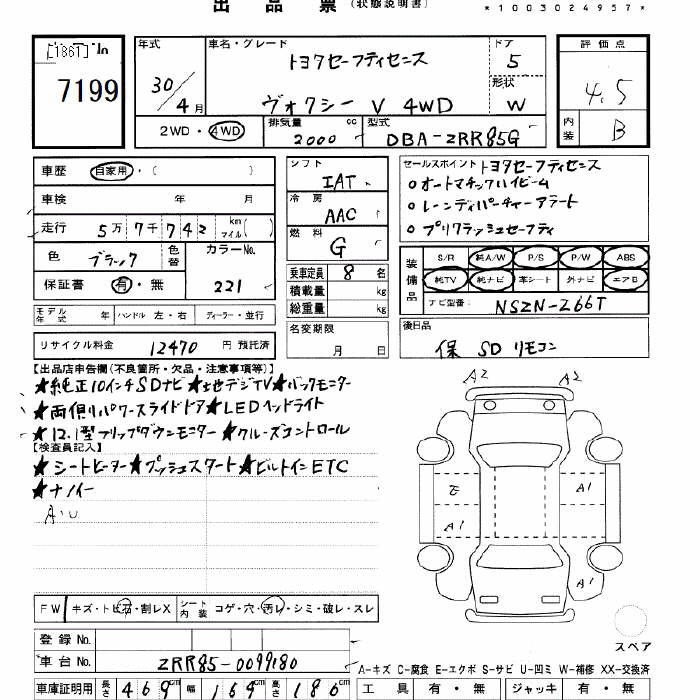 出品票(状態説明書)
*1003024957*
[186T] In
7199
年式 30/4月
車名・グレード トヨタセーフティセンス
ヴォクシー V 4WD
ドア 5
形状 W
評価点 4.5
内装 B
2WD・4WD 排気量 2000 cc 型式 DBA-ZRR85G
車歴 自家用・( )
車検 年 月
走行 5万7千742 km マイル( )
色 ブラック 色替 カラーNo. 221
保証書 有・無
シフト IAT
冷房 AAC
燃料 G
乗車定員 8 名
積載量 kg
総重量 kg
名変期限 月 日
セールスポイント トヨタセーフティセンス
○オートマチックハイビーム
○レーンディパーチャーアラート
○プリクラッシュセーフティ
装備品 S/R 純A/W P/S P/W ABS
純TV 純ナビ 革シート 外ナビ エアロ
ナビ型番: NSZN-Z66T
モデル年式 年 ハンドル 左・右 ディーラー・並行
後日品 保 SD リモコン
リサイクル料金 12470 円 預託済
【出品店申告欄(不良箇所・欠品・注意事項等)】
★純正10インチSDナビ★地デジTV★バックモニター
★両側パワースライドドア★LEDヘッドライト
★12.1型フリップダウンモニター★クルーズコントロール
【検査員記入】
★シートヒーター★プッシュスタート★ビルトインETC
★ナノイー
A・U
A2 A2
E A1
A1
A1
FW キズ・トビ石・割レX シート内装 コゲ・穴・汚レ・シミ・破レ・スレ
スペア
登録No.
車台No. ZRR85-0099180
A-キズ C-腐食 E-エクボ S-サビ U-凹ミ W-補修 XX-交換済
車庫証明用 長さ 469cm 幅 169cm 高さ 186cm 工具 有・無 ジャッキ 有・無